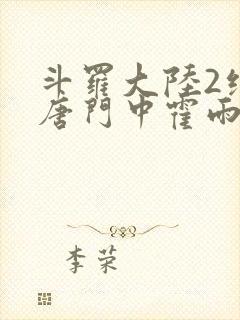 斗羅大陸2
唐門中霍雨
李荣